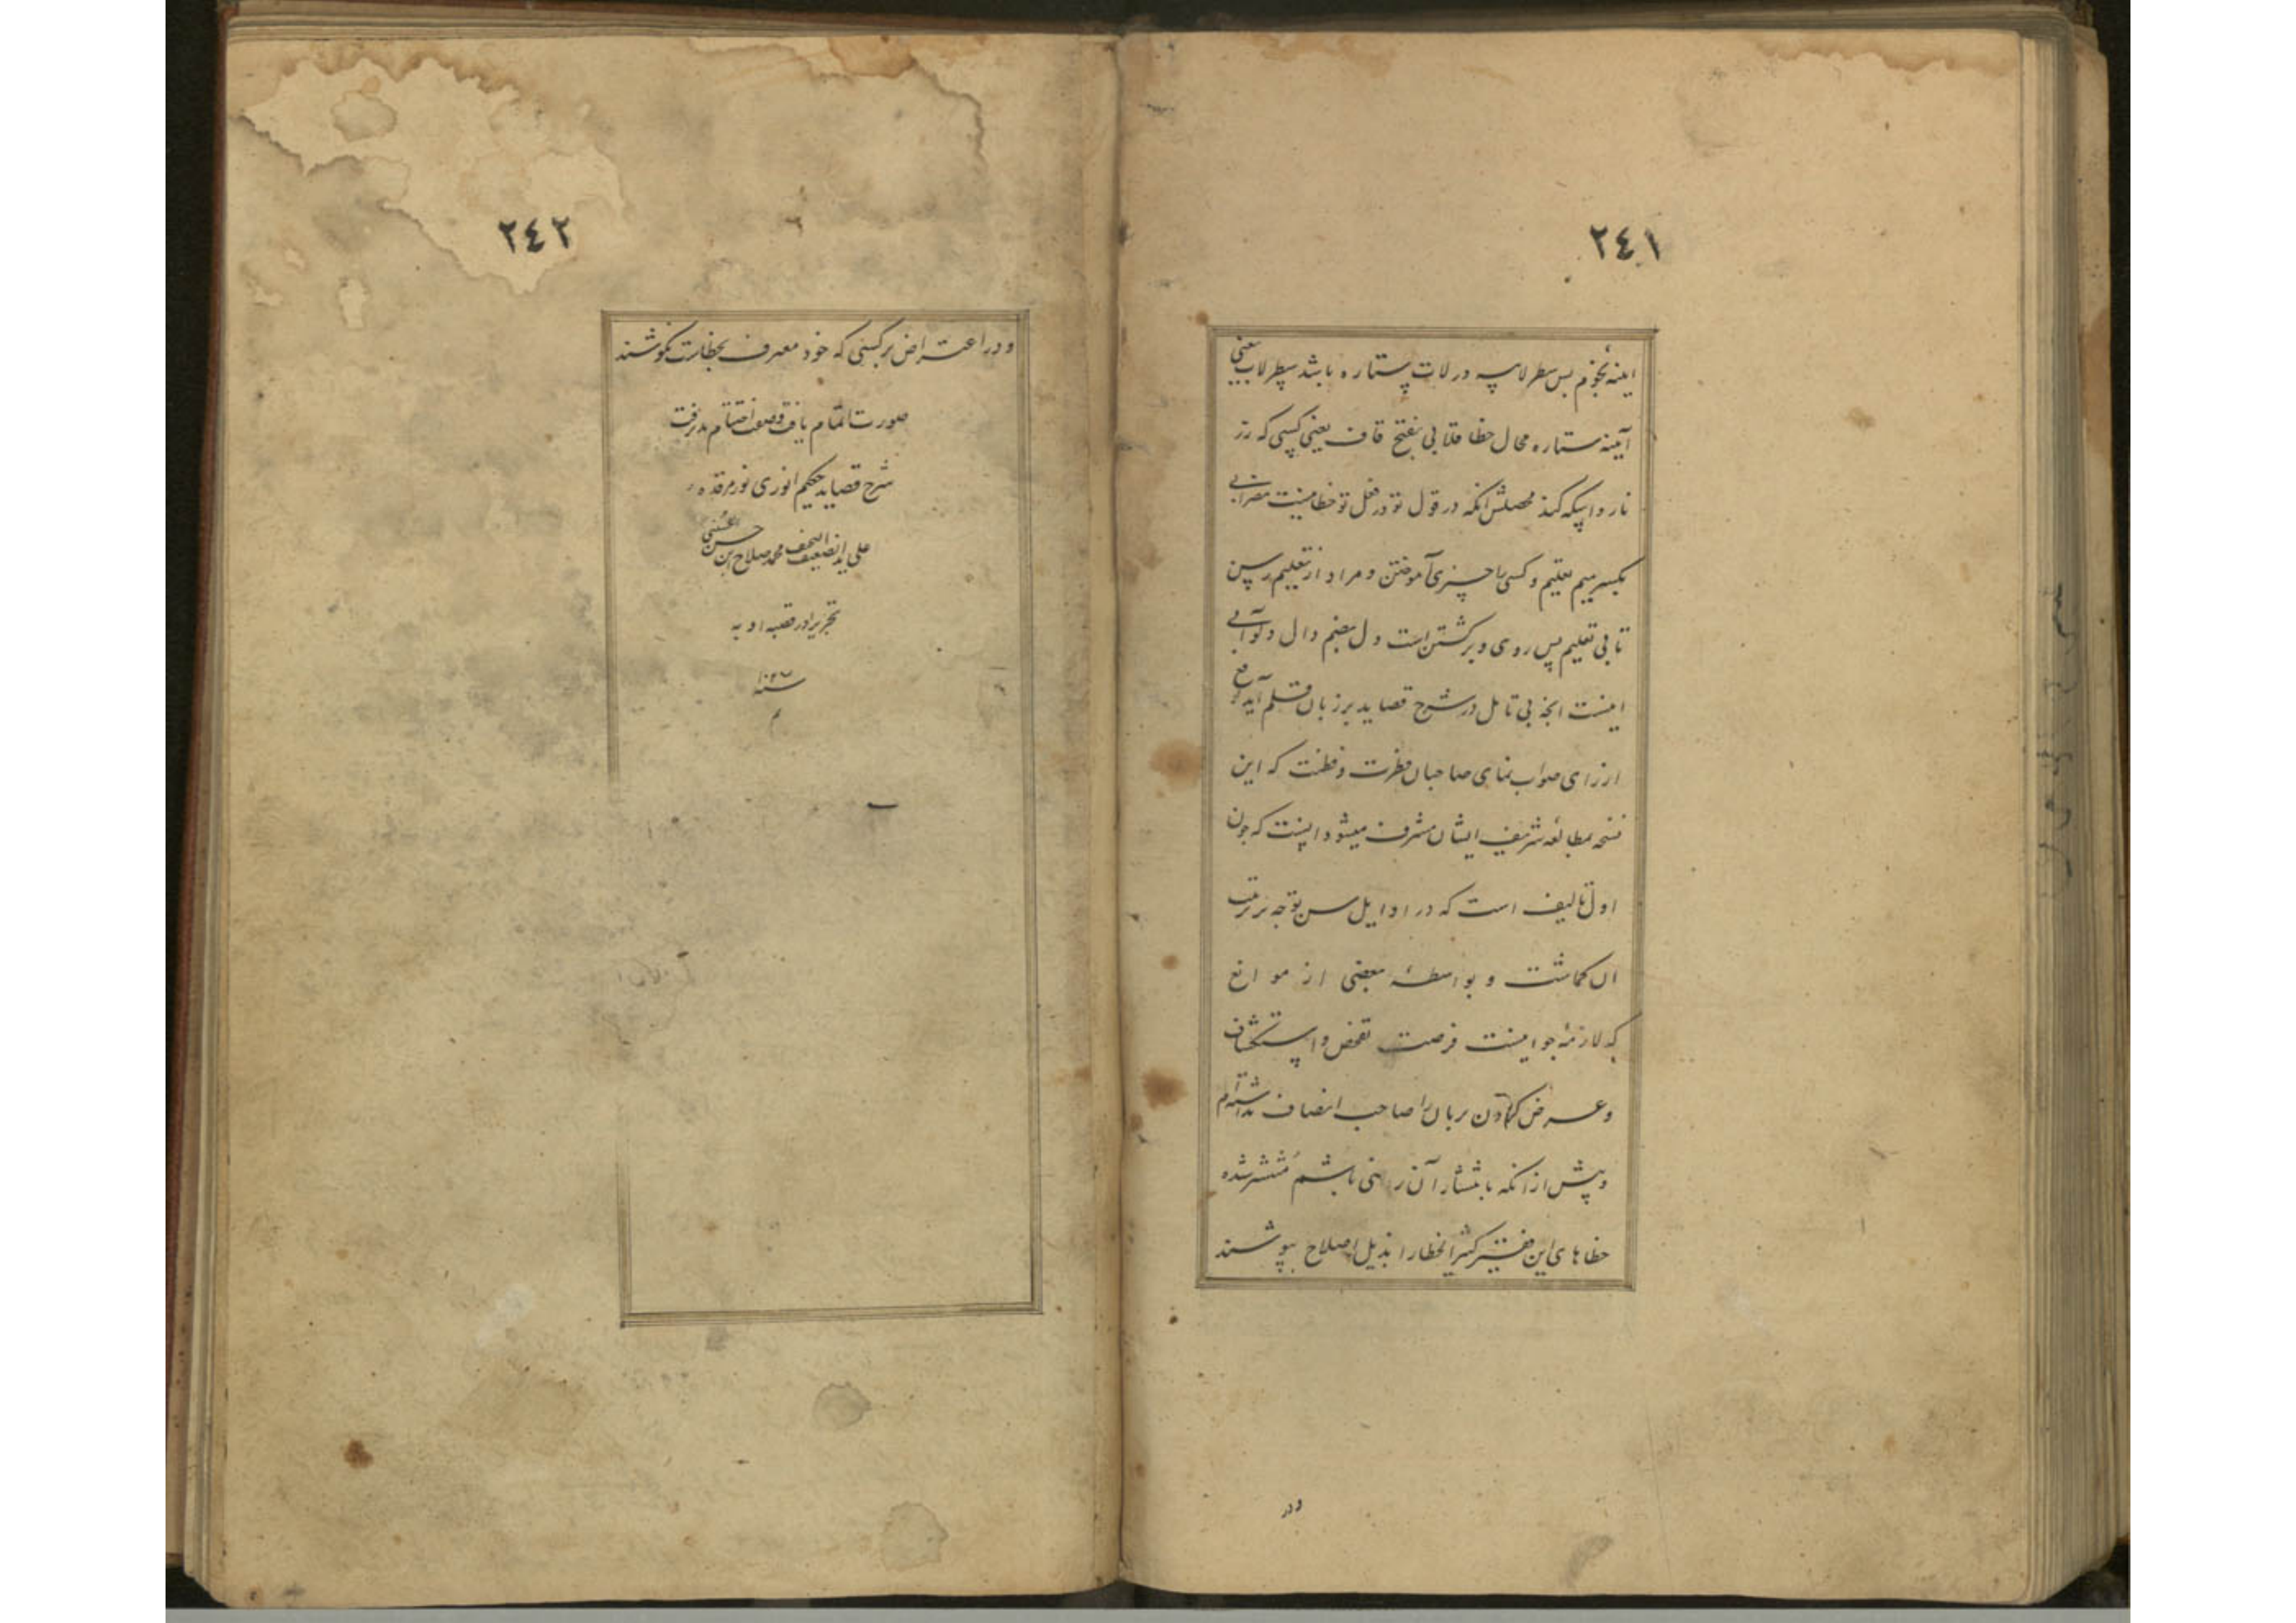 ٢٤١
اینه نجوم بس سطر لاب در لات ستاره باشد سطر لاب یعنی
آینه ستاره محال خطا قلابی بفتح قاف یعنی کسی که زر
ناروا سکه کند محصلش انکه در قول تو و در فعل تو خطا نیست مضرابی
بکسر میم تعلیم و کسی را چیزی آموختن و مراد از تعلیم رسن
تابی تعلیم پس روی و برگشتن است دل بضم دال دلو آبی
اینست انچه بی تامل در شرح قصاید بر زبان قلم آمد
از رای صواب نمای صاحبان فطرت و فطنت که این
نسخه بمطالعه شریف ایشان مشرف میشود اینست که چون
اول تالیف است که در اوایل سن توجه بر ترتیب
ان کماشت و بواسطهٔ بعضی از موانع
که لازمهٔ جوانیست فرصت تفحص و استکشاف
و عرض کردن بر یاران صاحب انصاف نداشته ام
و پیش از انکه بانتشار آن راضی باشم منتشر شده
خطاهای این فقیر کثیر الخطا را بذیل اصلاح بپوشند
و در
٢٤٢
و در اعتراض بر کسی که خود معترف بخطاست نکوشند
صورت اتمام یافت و صفت اختتام پذیرفت
شرح قصاید حکیم انوری نور مرقده
علی ید الضعیف النحیف محمد صلاح ابن حسن الحسنی
تحریرا در قصبه اوبه
سنه
م